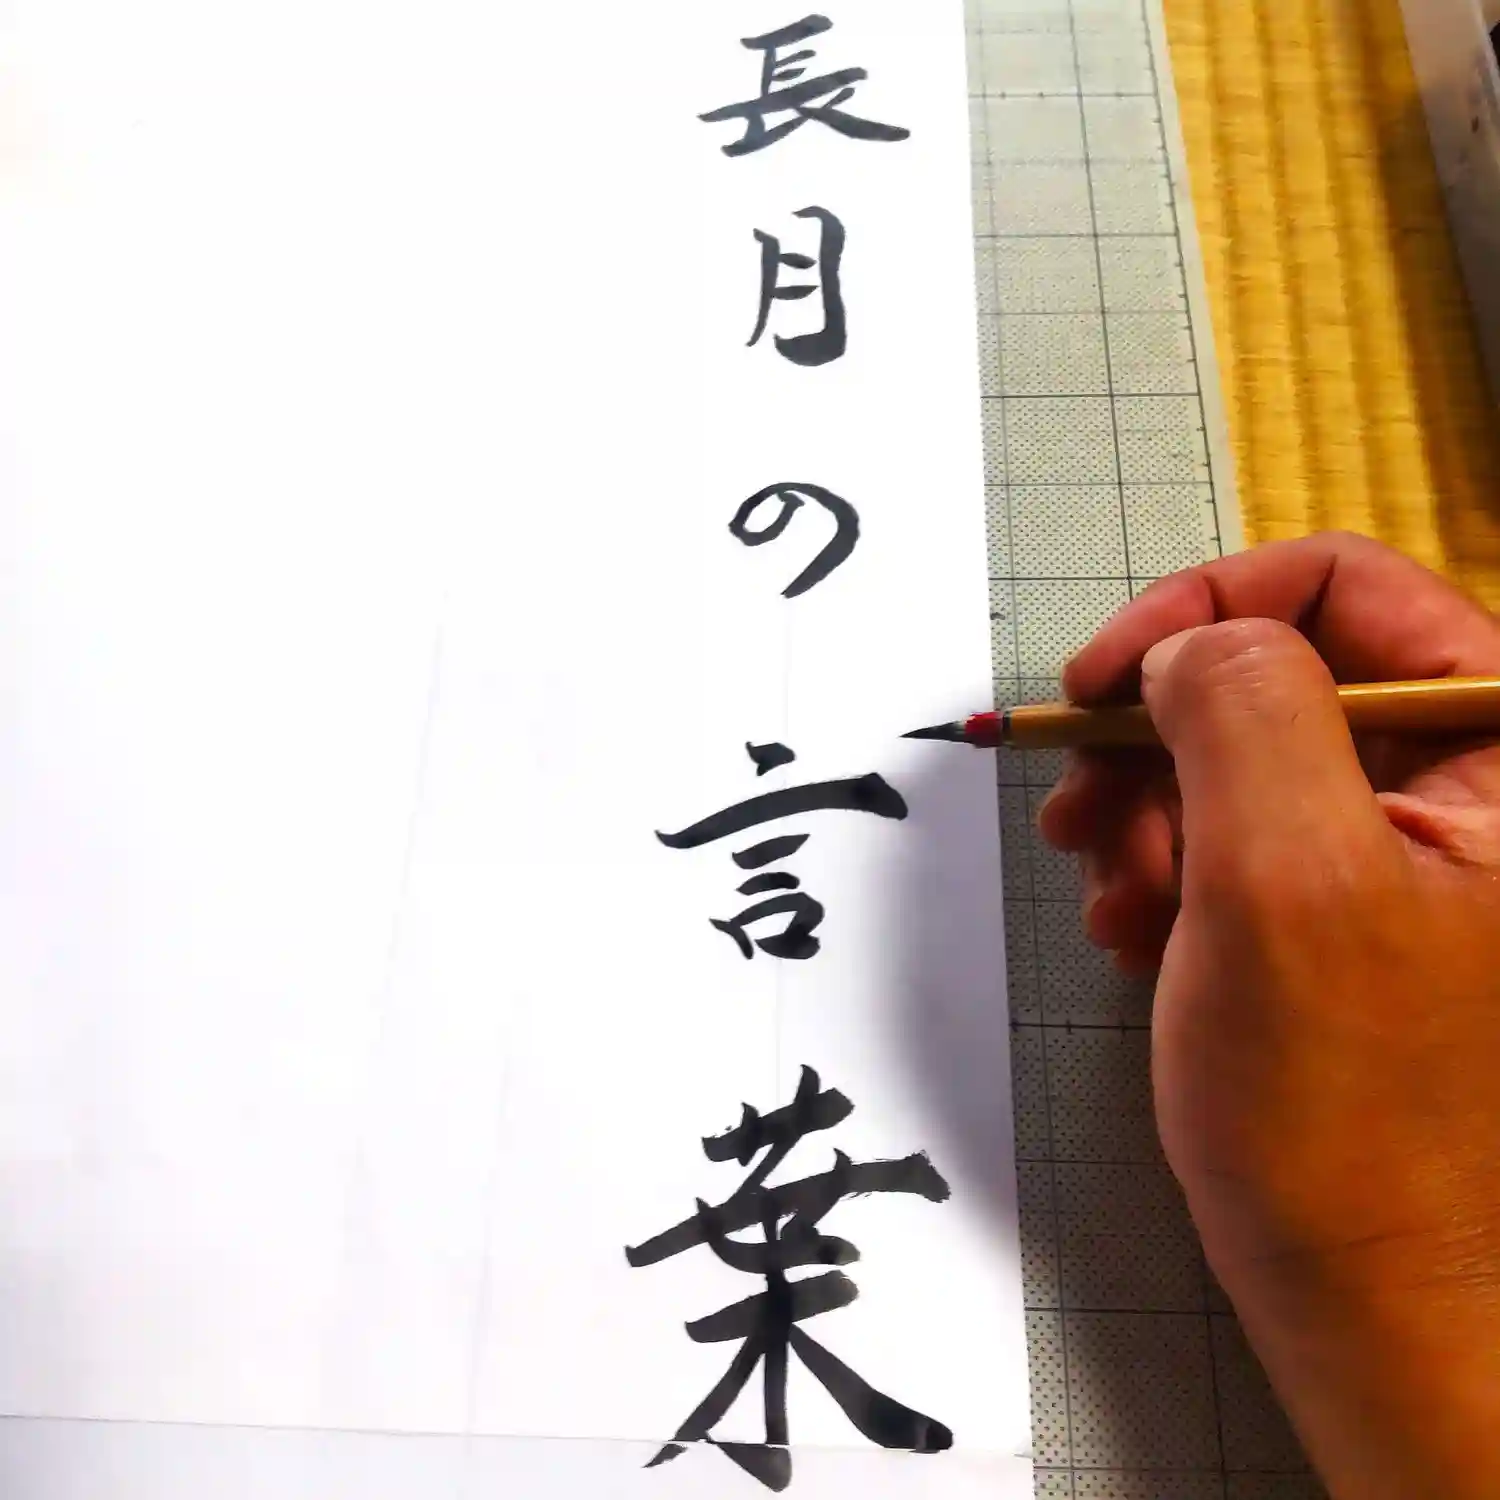 長月の言葉